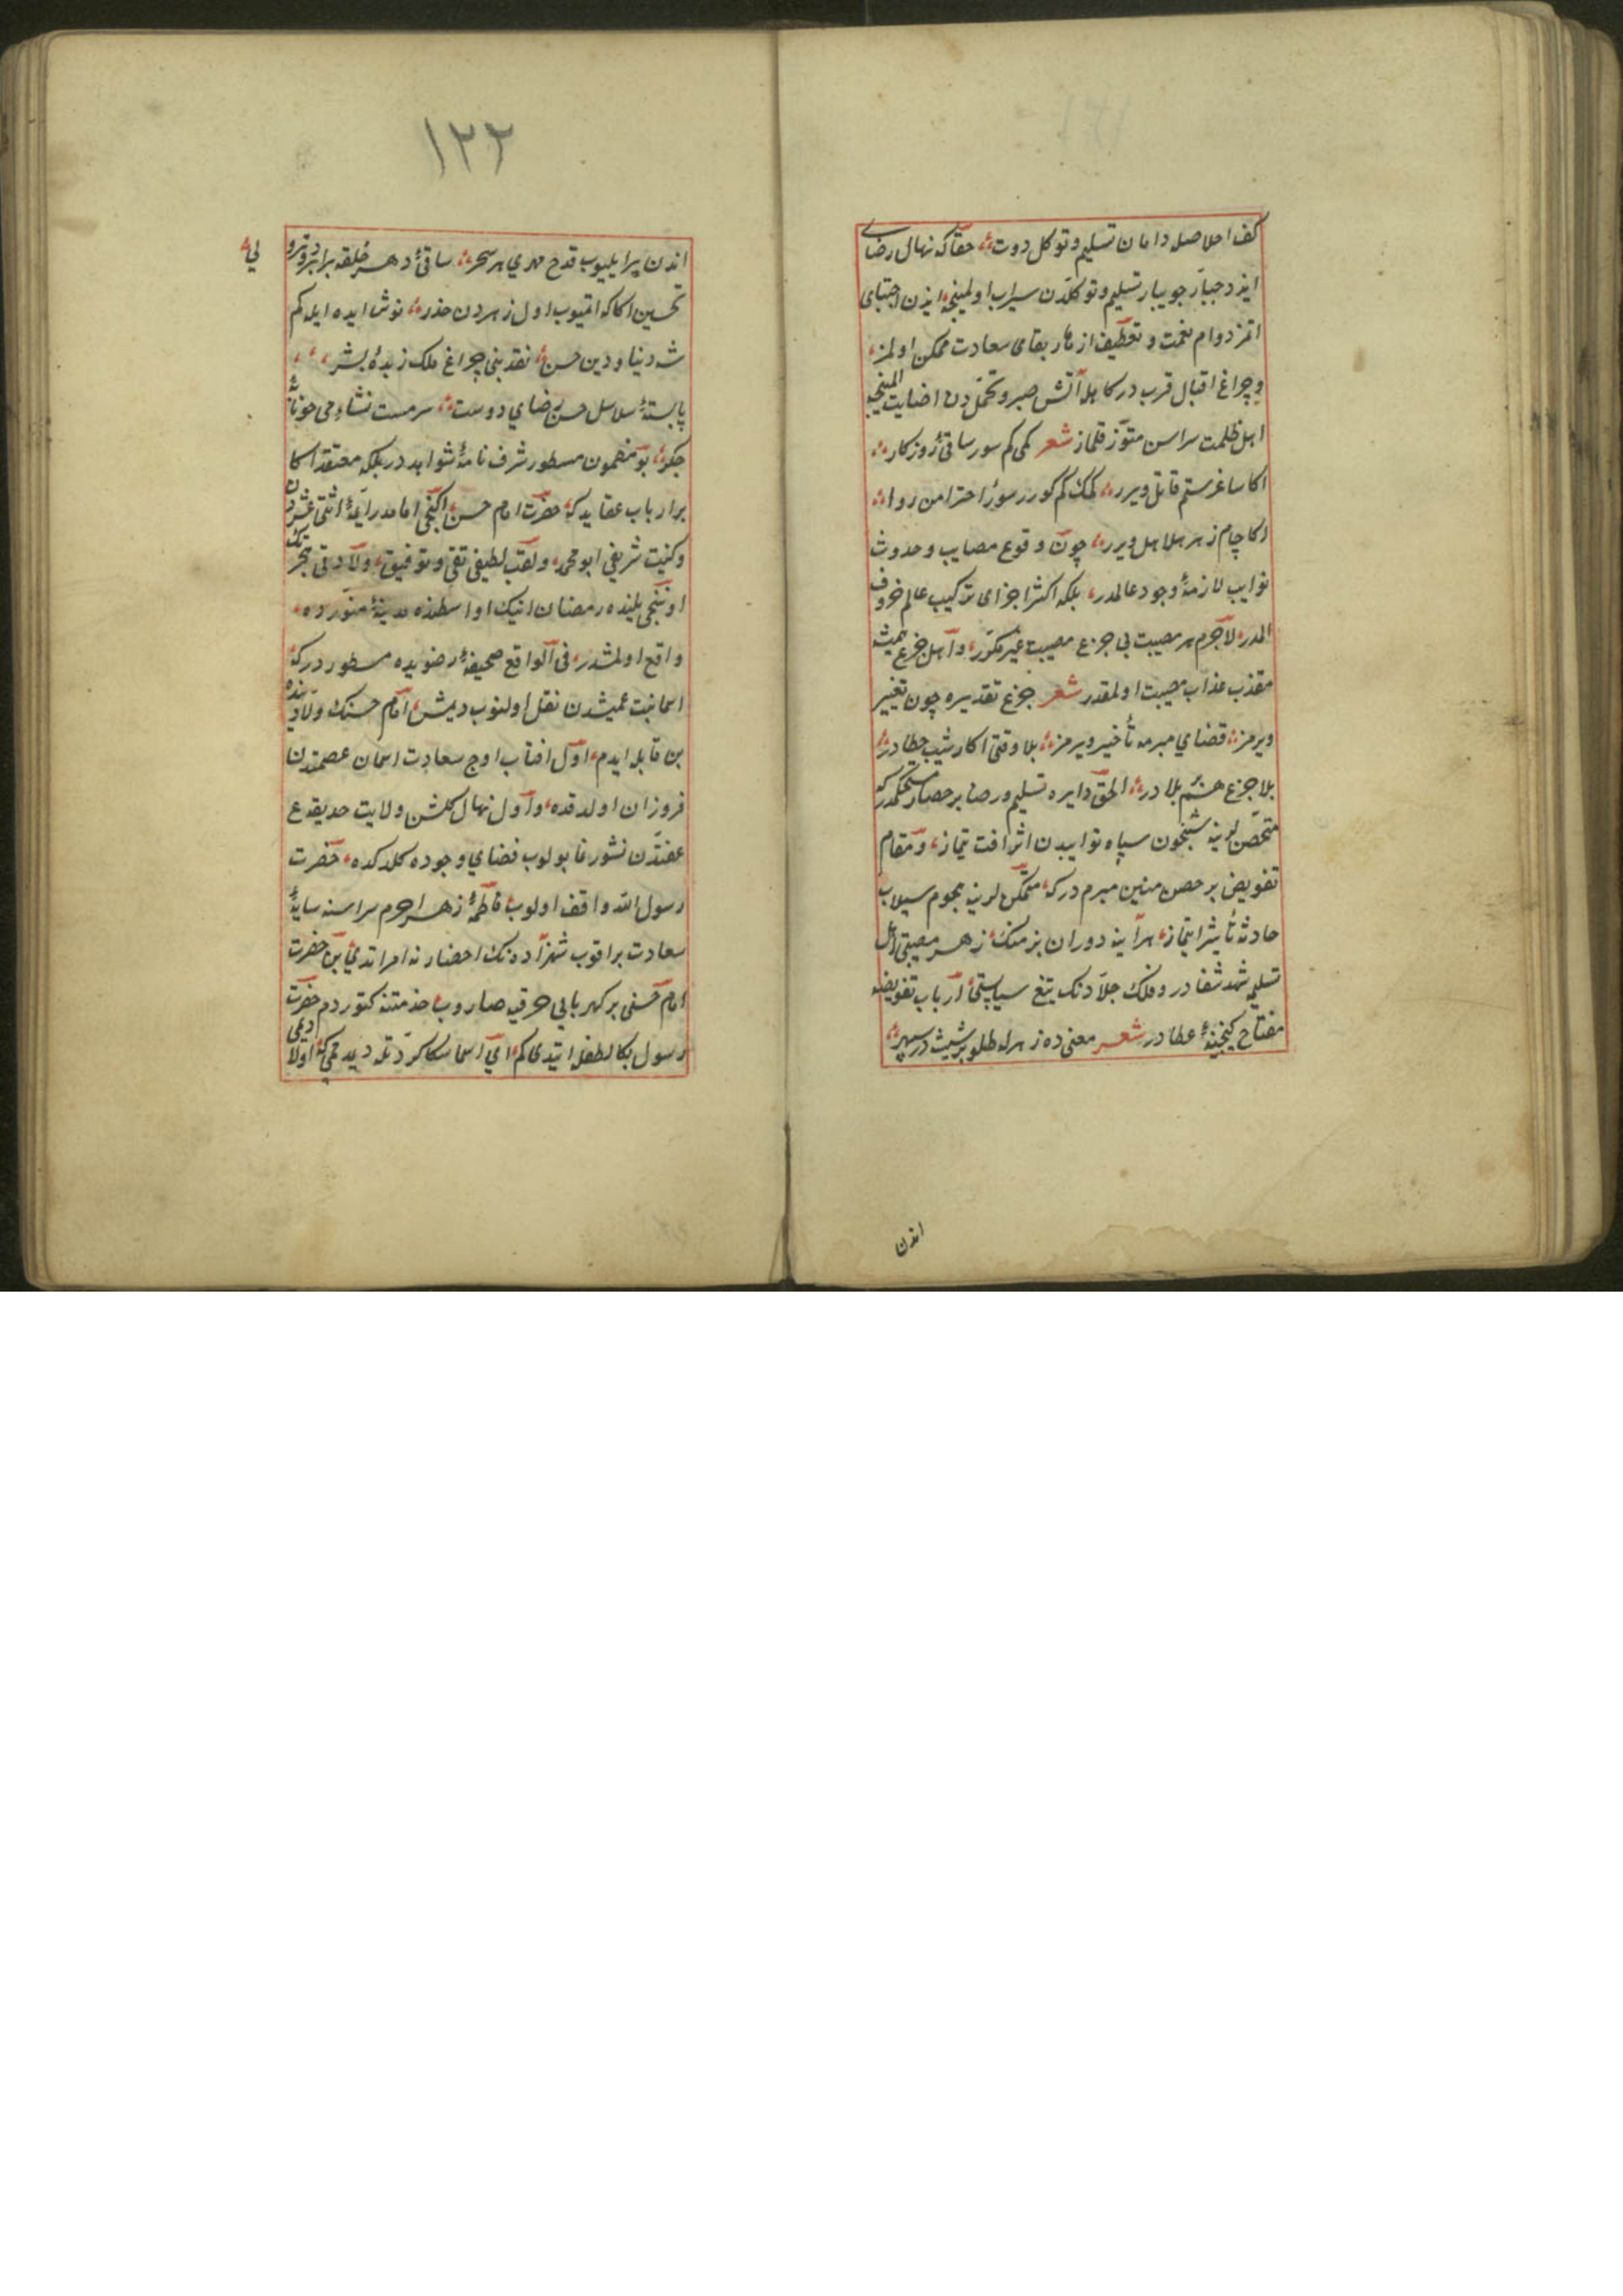 كف اخلاصله دامان تسليم و توكل دوت حقا كه نهال رضاى
ايزد جبار جويبار تسليم و توكلدن سيراب اولمينجه ايذن اجتباى
اتمز دوام نعمت و تعطيف ازهار بقاى سعادت ممكن اولمز
و چراغ اقبال قرب دركاهله آتش صبر و تحمل دن اضايت المينجه
اهل ظلمت سراسن منور قلماز شعر كمى كم سور ساقئ روزكار
اكا ساغر ستم قاتل ويرر كمك كم كورر سوز احترامن روا
اكا جام زهر هلاهل ويرر چون وقوع مصايب و حدوث
نوايب لازمهٔ وجود عالمدر بلكه اكثر اجزاى تركيب عالم
المدر لاجرم هر مصيبت بى جزع مصيبت غير مكرر و اهل جزع هميشه
معذب عذاب مصيبت اولمقدر شعر جزع تقديره چون تغيير
ويرمز قضاي مبرمه تأخير ويرمز بلا وقتى اكا رشيب خطادر
بلا جزع هم بلا در الحق دايره تسليم و رضا بر حصار مستحكمدر كه
متحصن لرينه شبخون سپاه نوايبدن اثر افت يتماز و مقام
تفويض بر حصن متين مبرم در كه متمكن لرينه هجوم سيلاب
حادثه تأثير ايتماز هرآينه دوران بزمنك زهر مصيبتى اهل
تسليمه شهد شفا در و فلك جلادنك تيغ سياستى ارباب تفويضه
مفتاح كنجينهٔ عطا در شعر معنى ده زهرله طلو بر شيشه در سپهر
اندن
١٢٢
اندن پر ايليوب قدح مهرى هر سحر ساقئ دهر خلقه برابر
لي
تحسين اكا كه اتميوب اول زهردن حذر نوش ايده ايله كم
شه دنيا و دين حسن نقد نبى چراغ ملك زبدهٔ بشر
پابستهٔ سلاسل حسن رضاي دوست سرمست نشاءِ مى خونابهٔ
جكر بو مضمون مسطور شرف نامهٔ شواهد در بلكه معتقد اكا
برار باب عقايد كه حضرت امام حسن اكنجى امامدر ايمهٔ اثنى عشردن
و كنيت شريفى ابو محمد و لقب لطيفى تقى و توفيق ولادتى هجرتك
اوننجى يلنده رمضان اينك اواسطنده مدينهٔ منوره ده
واقع اولمشدر فى الواقع صحيفهٔ رضويه ده مسطور در كه
اسما بنت عميشدن نقل اولنوب ديمش امام حسنك ولادتنده
بن قابله ايدم اول افتاب اوج سعادت اسمان عصمتدن
فروزان اولدقده و اول نهال كلشن ولايت حديقهٔ
عفتدن نشو و نما بولوب فضاي وجوده كلدكده حضرت
رسول الله واقف اولوب فاطمهٔ زهرا حرم سراسنه سايهٔ
سعادت براقوب شهزاده نك احضارنه امر اتدي بن حضرت
امام حسنى بر كهربايى خرقيه صاروب خدمتنه كتوردم حضرت
رسول بكا لطفله ايتدى كم اى اسما سكا